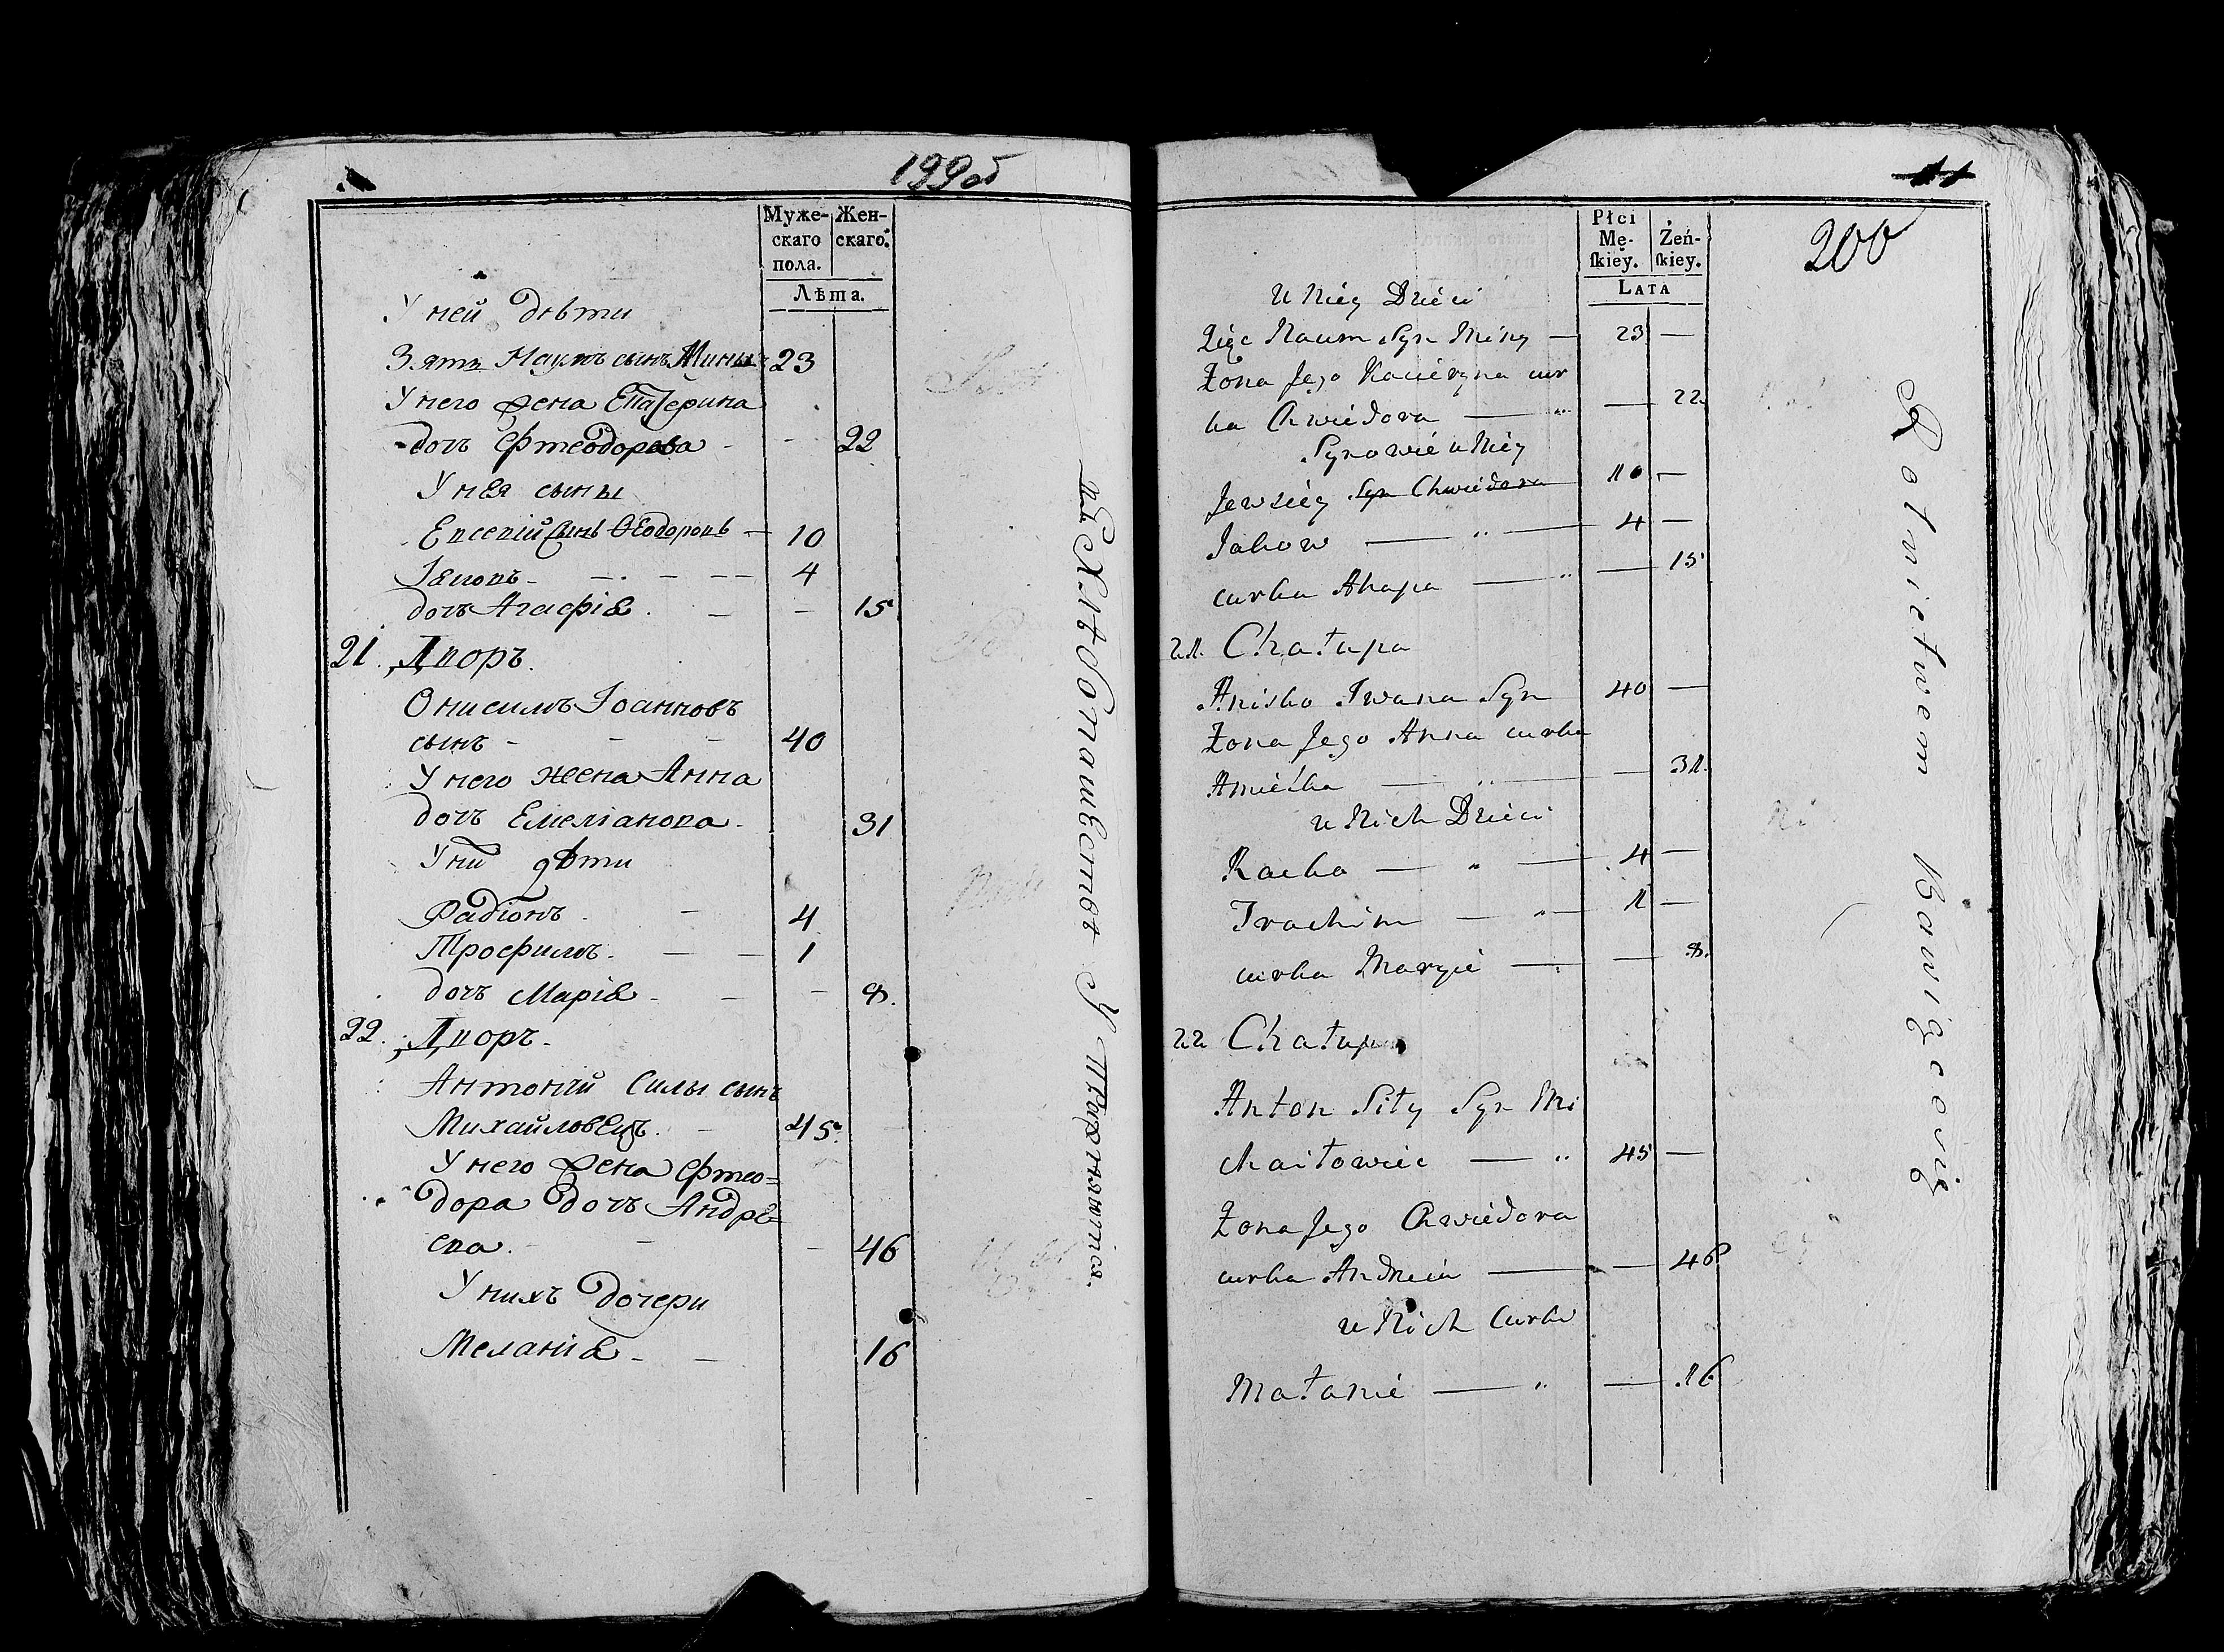 199об
Муже-
скаго
пола.
Жен-
скаго.
Лѣта.
У ней дѣти
Зять Наумъ сынъ Мины 23
У него жена Екатерина
дочь Ѳтеодорова - - 22
У нея сыны
Евсевій сынъ Ѳеодоровъ — 10
Іаковъ - — - — 4
дочь Агафіа - — 15
21. Дворъ.
Онисимъ Іоанновъ
сынъ - - - 40
У него жена Анна
дочь Емеліанова - 31
У ни дѣти
Радіонъ - 4
Трофимъ - — — 1
дочь Маріа - — - 8.
22. Дворъ -
Антоній Силы сынъ
Михайловецъ. - 45.
У него жена Ѳтео=
дора дочь Андре=
ева - - - 46
У нихъ дочери
Меланіа - — 16
въ Хлѣбопашествѣ Упражняются.
11
200
Płci
Mę-
ſkiey.
Żeń-
ſkiey.
LATA
U Niéy Dziéci
Zięć Naum Syn Miny — 23 —
Żona Jego Kacieryna cur
ka Chwiedora — „ — 22
Synowié u Niéy
Jewsiéy Syn Chwiedora 10 —
Jakow — „ — 4 —
curka Ahapa — „ — 15
21. Chałupa
Anisko Iwana Syn 40 —
Żona Jego Anna curka
Amielka — „ — 31.
u Nich Dzieci
Racko — „ — 4 —
Trachim — „ — 1 —
curka Maryié — „ — 8.
22 Chałupa
Anton Siły Syn Mi
chaiłowiec — „ 45 —
Żona Jego Chwiédora
curka Andreia — — 46
u Nich Curka
Małanié — „ — 16
Rolnictwem Bawią się